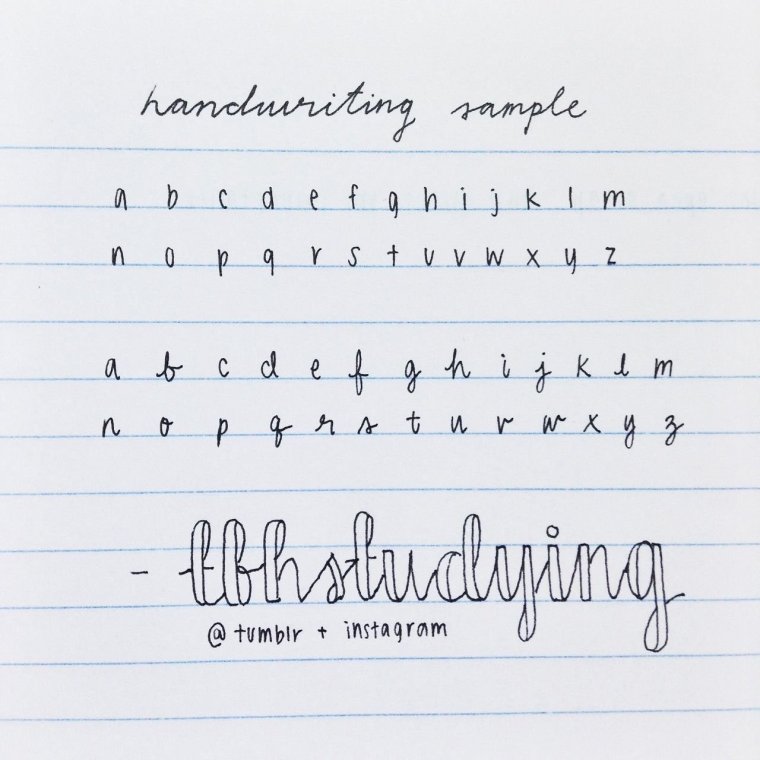 handwriting sample
a b c d e f g h i j k l m
n o p q r s t u v w x y z
a b c d e f g h i j k l m
n o p q r s t u v w x y z
- tbhstudying
@ tumblr + instagram